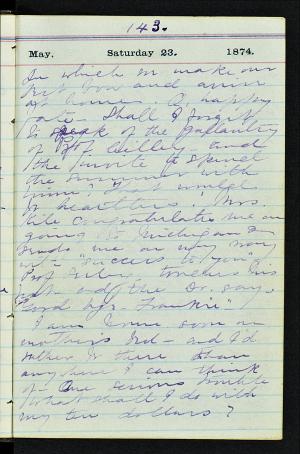 143.
May. Saturday 23. 1874.
in which we make our
best bow and arrive
at home. A happy
fate. Shall I forget
to speak of the gallantry
of Prof Willey and
the invite to spend
the summer with
him? That would
be heartless! Mrs.
congratulates me on
going to Michigan &
sends me on my way
with "success to you"
Prof touches his
hat and the Dr. says
"Good bye Frankie"
I am home soon on
mother's bed - and I'd
rather be there than
anywhere I can think
of - One serious trouble
What shall I do with
my ten dollars?